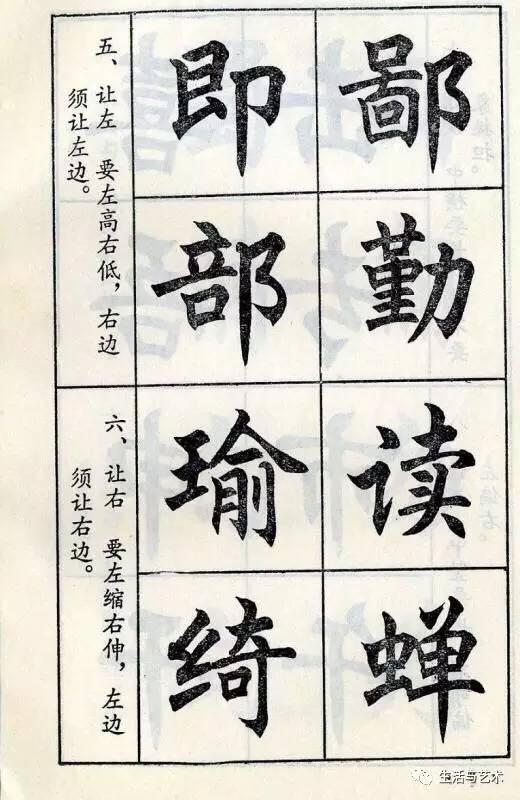 五、让左 要左高右低，右边
须让左边。
即 鄙
部 勤
六、让右 要左缩右伸，左边
须让右边。
瑜 读
绮 蝉
生活与艺术